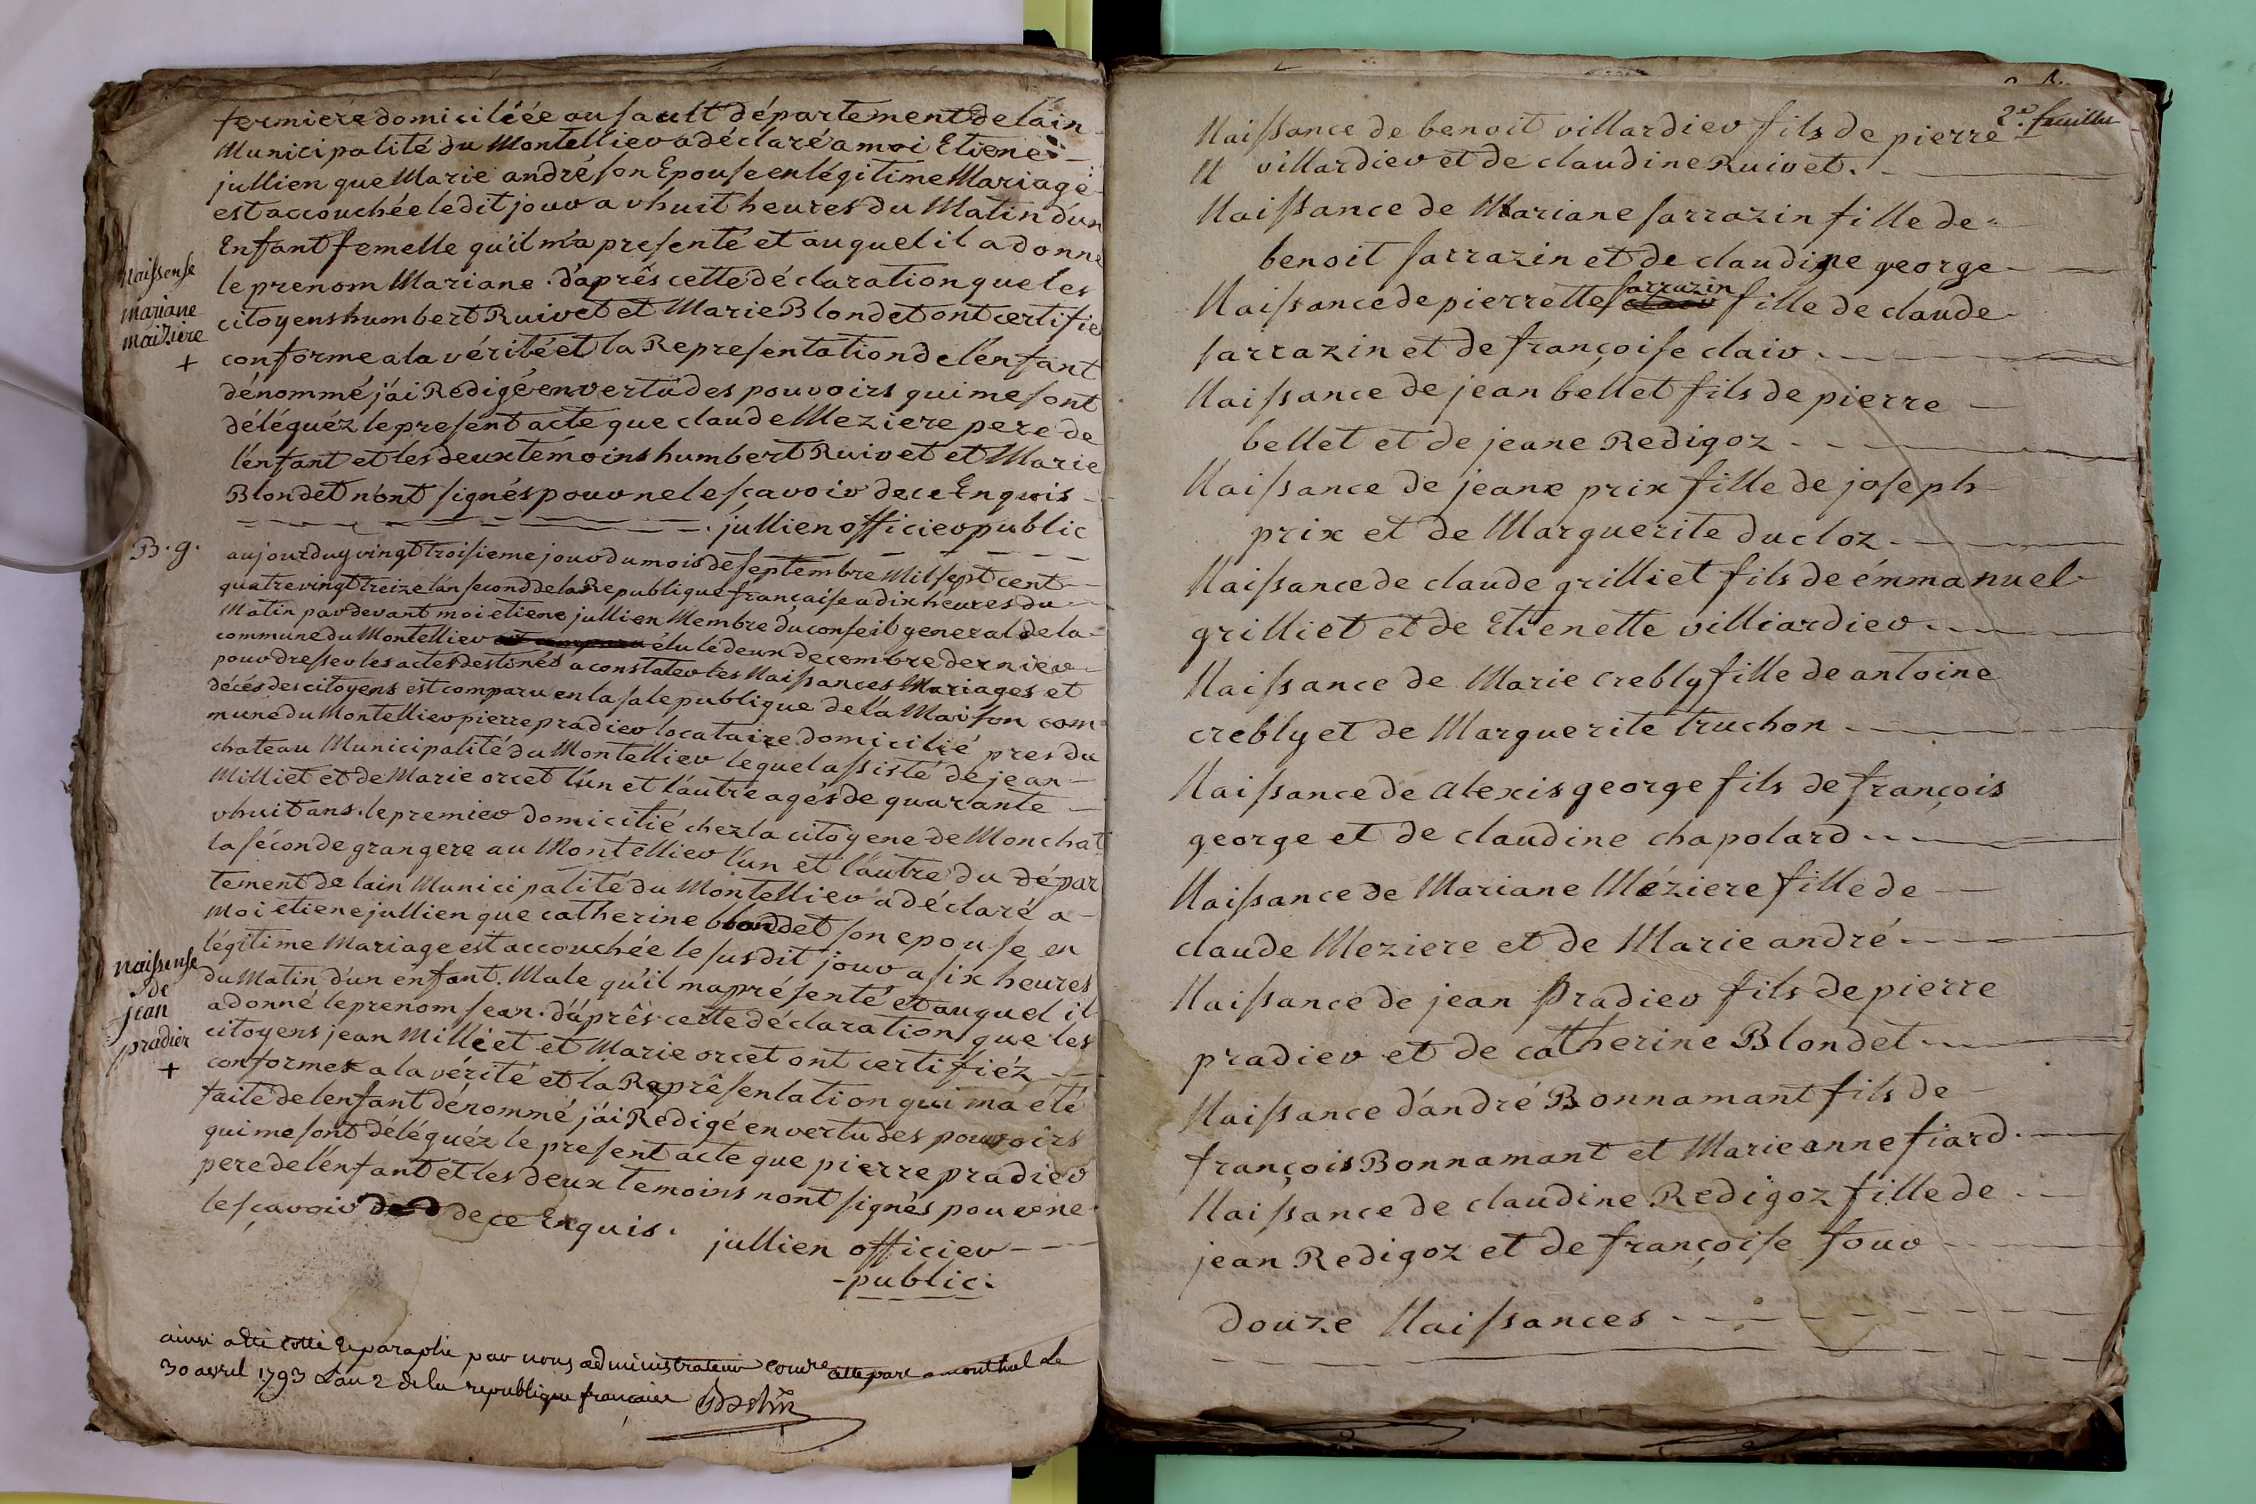 fermiere domiciléée au sault département de lain
Municipalité du Montellier a déclaré a moi Etiene
jullien que Marie andré son Epouse en légitime Mariage
est accouchée ledit jour a vhuit heures du Matin d'un
Enfant femelle qu'il m'a presenté et auquel il a donné
le prenom Mariane . d'aprês cette déclaration que les
citoyens humbert Ruivet et Marie Blondet ont certifié
conforme a la vérité et la Representation de l'enfant
dénommé j'ai Redigé en vertu des pouvoirs qui me sont
déléguéz le present acte que claude Meziere pere de
l'enfant et les deux témoins humbert Ruivet et Marie
Blondet n'ont signés pour ne le sçavoir de ce Enquis
jullien officier public
Naissense
mariane
maiziere
+
B. g.
aujourduy vingt troisieme jour du mois de septembre Mil sept cent
quatre vingt treize l'an second de la Republique française a dix heures du
Matin par devant moi etiene jullien Membre du conseil general de la
commune du Montellier élu le deux decembre dernier
pour dresser les actes destinés a constater les Naissances Mariages et
décés des citoyens est comparu en la sale publique de la Maison com
mune du Montellier pierre pradier locataire domicilié pres du
chateau Municipalité du Montellier lequel assisté de jean
Milliet et de Marie orcet l'un et l'autre agés de quarante
vhuit ans. le premier domicilié chez la citoyene de Monchat
la séconde grangere au Montellier l'un et l'autre du dépar
tement de lain Municipalité du Montellier a déclaré a
Moi etiene jullien que catherine blondet son epouse en
légitime Mariage est accouchée le susdit jour a six heures
du Matin d'un enfant Male qu'il ma présenté et auquel il
a donné le prenom jean . d'áprês cette déclaration que les
citoyens jean Milliet et Marie orcet ont certifiéz
conforme a la vérité et la Reprêsentation qui ma été
faite de lenfant dénommé j'ai Redigé en vertu des pouvoirs
qui me sont déléguéz le present acte que pierre pradier
pere de l'énfant et les deux temoins nont signés pour ne
le sçavoir de ce Enquis . jullien officier
public .
naissense
de
jean
pradier
+
ainsi a été cotté et paraphé par nous administrateur a montluel le
30 avril 1793 L'an 2 de la republique francaise
2e. feuillet
Naissance de benoit villardier fils de pierre
villardier et de claudine Ruivet .
Naissance de Mariane sarrazin fille de
benoit sarrazin et de claudine george
Naissance de pierrette sarrazin fille de claude
sarrazin et de françoise clair .
Naissance de jean bellet fils de pierre
bellet et de jeane Redigoz
Naissance de jeane prix fille de joseph
prix et de Marguerite ducloz .
Naissance de claude grilliet fils de émmanuel
grilliet et de Etienette villiardier .
Naissance de Marie crebly fille de antoine
crebly et de Marguerite truchon
Naissance de alexis george fils de françois
george et de claudine chapolard
Naissance de Mariane Méziere fille de
claude Meziere et de Marie andré
Naissance de jean Pradier fils de pierre
pradier et de catherine Blondet
Naissance d'andré Bonnamant fils de
françois Bonnamant et Marie anne fiard .
Naissance de claudine Redigoz fille de
jean Redigoz et de françoise four
douze Naissances